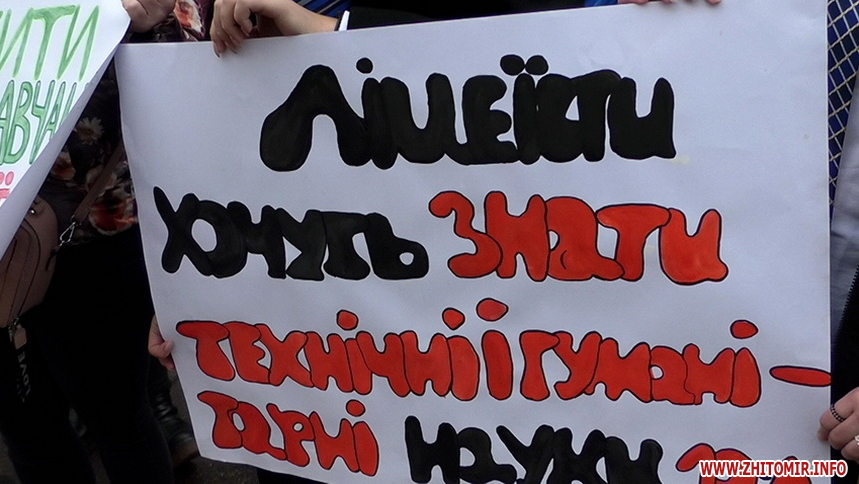 ЛІЦЕЇСТИ
ХОЧУТЬ ЗНАТИ
ТЕХНІЧНІ І ГУМАНІ-
ТАРНІ НАУКИ
WWW.ZHITOMIR.INFO